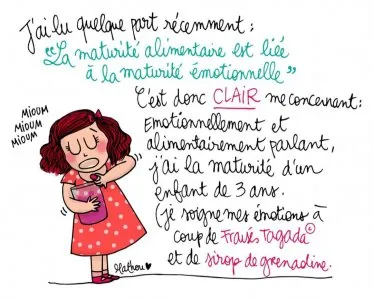 J'ai lu quelque part récemment :
"La maturité alimentaire est liée
à la maturité émotionnelle"
C'est donc CLAIR me concernant :
MIOUM
MIOUM
MIOUM
Emotionnellement et
alimentairement parlant,
j'ai la maturité d'un
enfant de 3 ans.
(je soigne mes émotions à
coup de Fraises Tagada©
et de sirop de grenadine.
Mathou